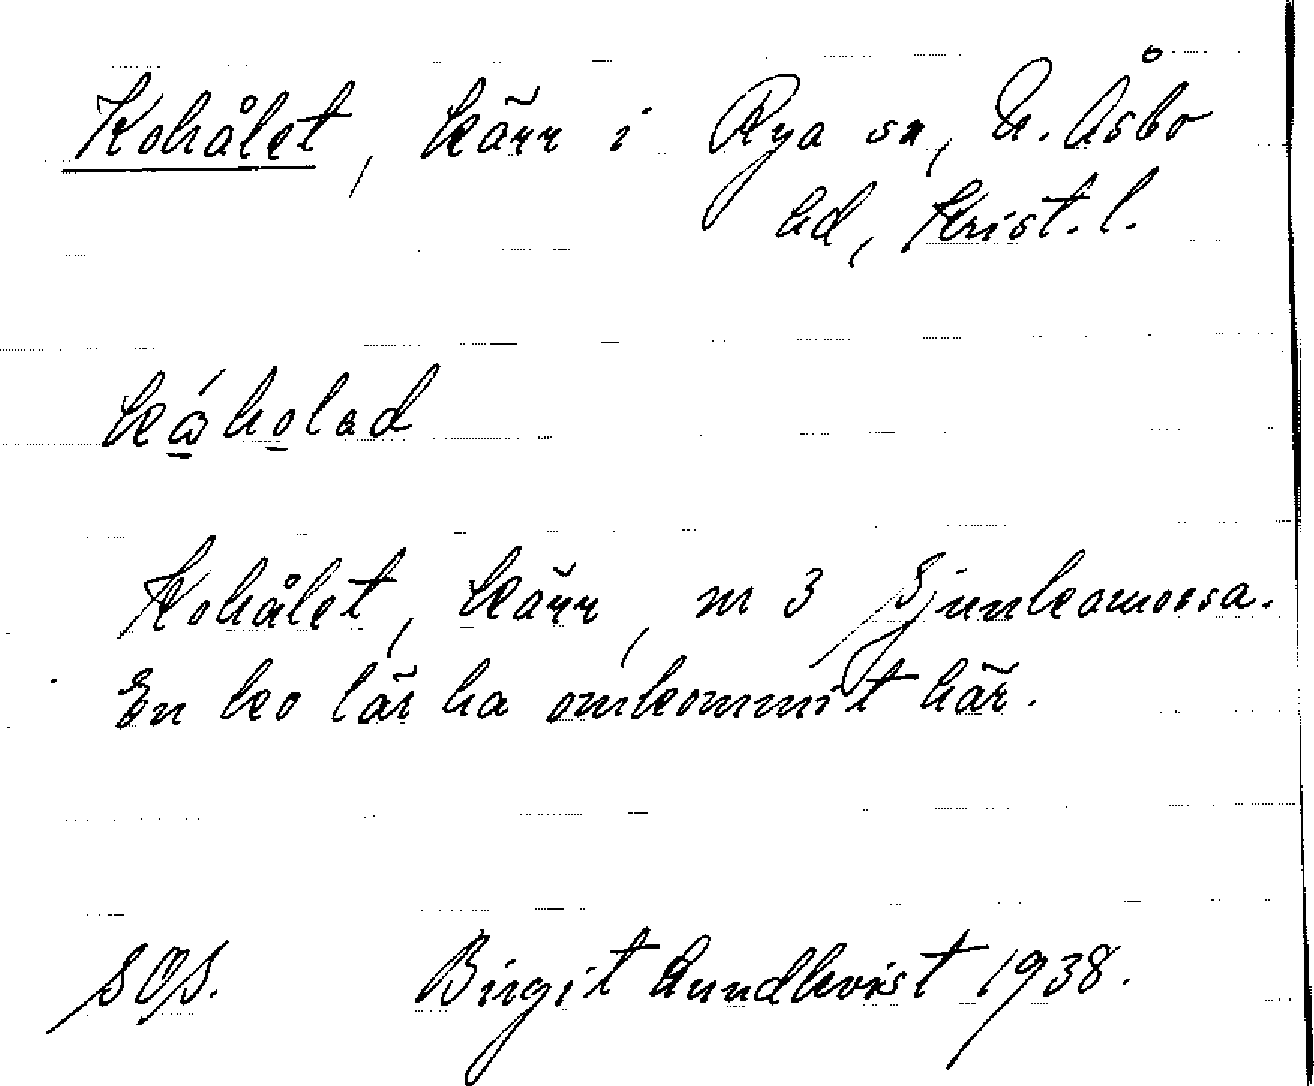 Kohålet, kärr i Rya sn, N. Åsbo
hd, Krist. l.
Kohålet, kärr, m 3 Sjunkamossa.
En ko lär ha omkommit här.
SOS. Birgit Lundkvist 1938.